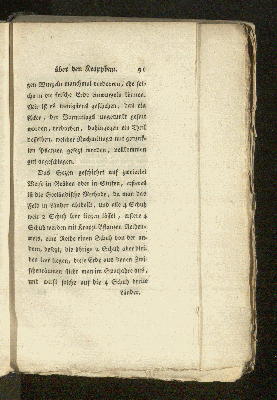 über den Krappbau. 91
gen Wurzeln manchmal verdorren, ehe sel-
che in die frische Erde
Mir ist es wenigstens geschehen, daß ein
Acker, der Vormittags ungetunkt gesetzt
worden, verdorben, dahingegen ein Theil
desselben, welcher Nachmittags mit getunk-
ten Pflanzen gesetzt worden, vollkommen
gut angeschlagen.
Das Setzen geschiehet auf zweierlei
Weise in Gräben oder in Stufen, erstered
ist die Seeländische Methode, da man das
Feld in Länder abtheilt, und alle 4 Schuh
weit 2 Schuh leer liegen lässet, erstere 4
Schuh werden mit Krapp-Pflanzen Reihen-
weis, eine Reihe einen Schuh von der an-
dern, besetzt, die übrigen 2 Schuh aber blei-
ben leer liegen, diese Erde aus denen Zwi-
schenräumen sticht man im Spatjahre aus,
und wirft solche auf die 4 Schuh breite
Länder.